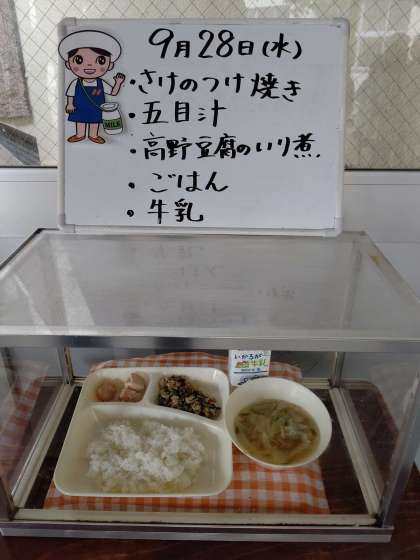 9月28日(水)
・さけのつけ焼き
・五目汁
・高野豆腐のいり煮
・ごはん
・牛乳
MILK
いかるが
牛乳